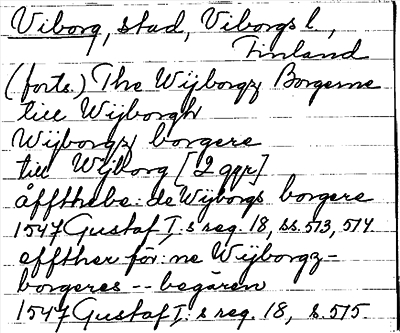 Viborg, stad, Viborgs l,
Finland
(forts.) The Wijborgz Borgerne
till Wijborgh
Wijborgz borgere
till Wijborg [2 ggr]
åffthebe: de Wijborgs borgere
1547 Gustaf I:s reg. 18, ss. 513, 514.
effther för:ne Wijborgz-
borgeres -- begären
1547 Gustaf I:s reg. 18, s. 515.